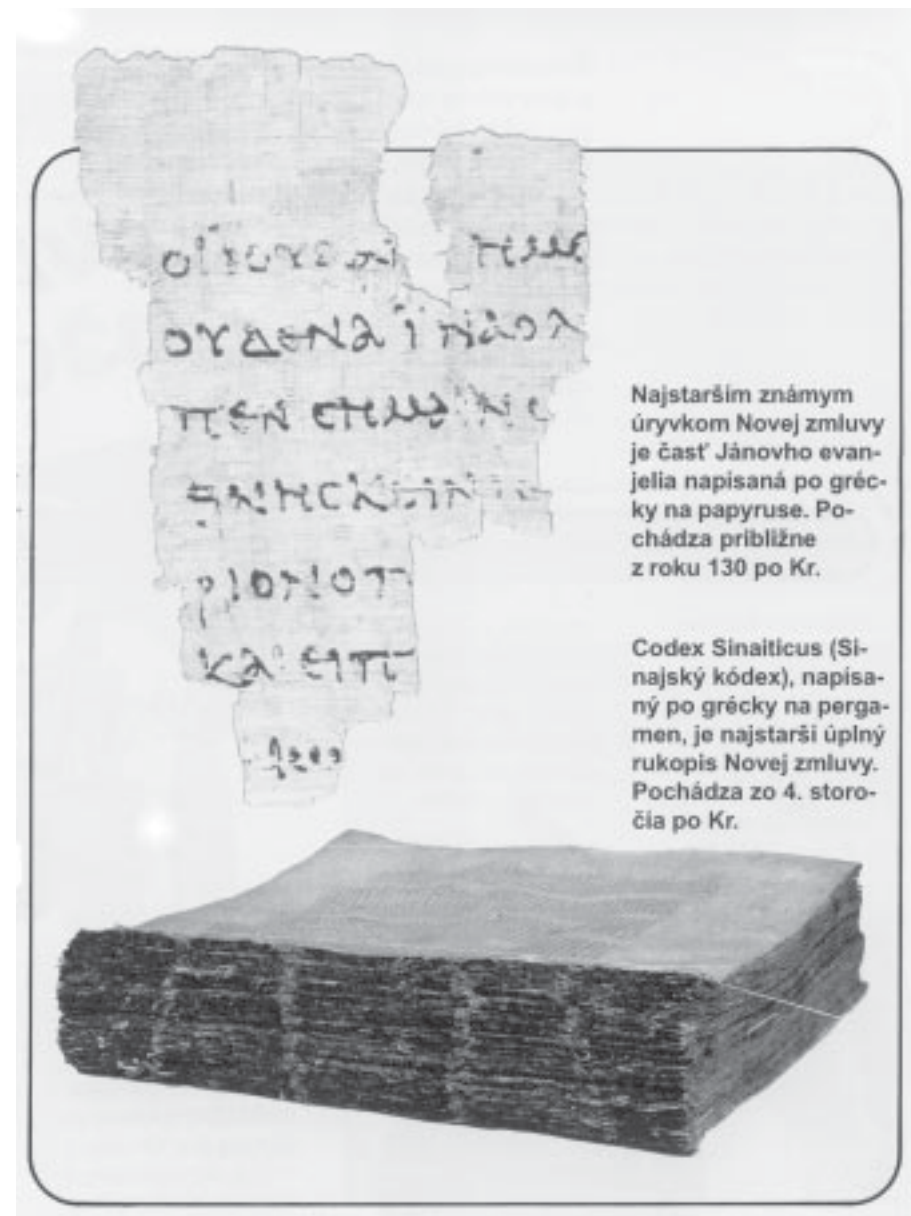 ΟΙ ΙΟΥΔΑΙ ΗΜΕ
ΟΥΔΕΝΑ ΙΝΑΟΛ
ΠΕΝ ΣΗΜΑΙΝΩ
ΘΝΗΣΚΕΙΝ ΙΣ
ΡΙΟΝΟΠ
ΚΑΙ ΕΙΠ
Najstarším známym
úryvkom Novej zmluvy
je časť Jánovho evan-
jelia napísaná po gréc-
ky na papyruse. Po-
chádza približne
z roku 130 po Kr.
Codex Sinaiticus (Si-
najský kódex), napísa-
ný po grécky na perga-
men, je najstarší úplný
rukopis Novej zmluvy.
Pochádza zo 4. storo-
čia po Kr.